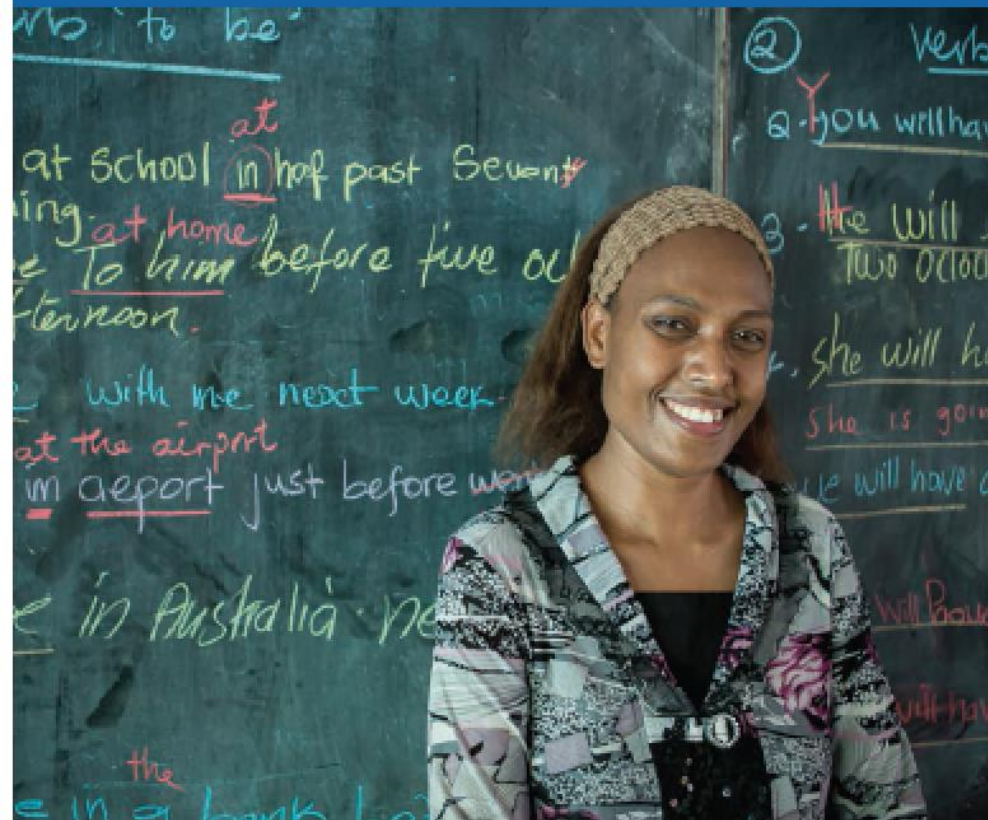 verb 'to be'
at
at school in haf past Sevent
ing.
at home
To him before five
fternoon.
with me next week.
at the airport
in aeport just before went
in Australia ne
the
e in a bank
②
Verb
2. You will hav
3. He will
Two ocloc
She will h
She is goin
we will have
will
will hav